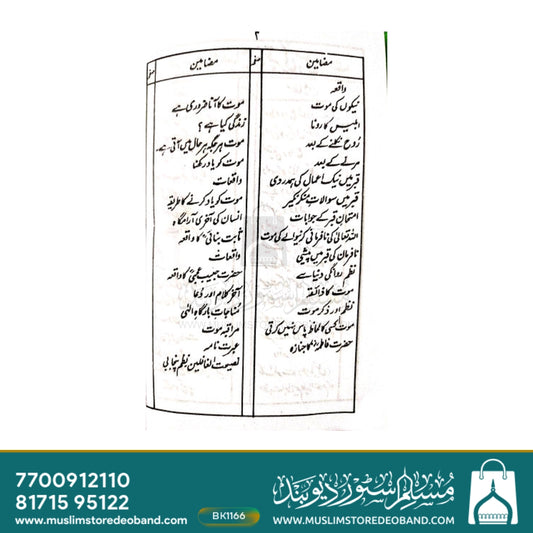 ۲
مضامین
صفحہ
مضامین
صفحہ
واقعہ
نیکوں کی موت
ابلیس کا رونا
رُوح نکلنے کے بعد
مرنے کے بعد
قبر میں نیک اعمال کی ہمدردی
قبر میں سوالات منکر نکیر
امتحانِ قبر کے جوابات
اللہ تعالیٰ کی نافرمانی کرنیوالے کی موت
نافرمان کی قبر میں پیشی
نظم روانگی دنیا سے
موت کا ذائقہ
نظم اور ذکر موت
موت کسی کا لحاظ پاس نہیں کرتی
حضرت فاطمہؓ کا جنازہ
موت کا آنا ضروری ہے
زندگی کیا ہے ؟
موت ہر جگہ ہر حال میں آتی ہے۔
موت کو یاد رکھنا
واقعات
موت کو یاد کرنے کا طریقہ
انسان کی آخری آرام گاہ
ثابت بنانیؒ کا واقعہ
واقعات
حضرت حبیب عجمیؒ کا واقعہ
آخر کلام اور دُعا
مُناجات بارگاہِ الٰہی
مراقبہ موت
عبرت نامہ
نصیحت الغافلین نظم پنجابی
7700912110
81715 95122
www.muslimstoredeoband.com
BK1166
مسلم اسٹور دیوبند
WWW.MUSLIMSTOREDEOBAND.COM